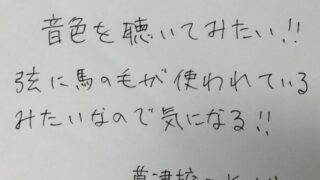 音色を聴いてみたい!!
弦に馬の毛が使われている
みたいなので気になる!!